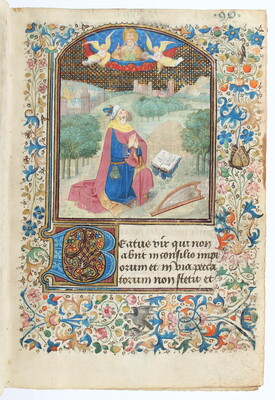 Beatus vir qui non
abiit in consilio impi
orum et in via pecca
torum non stetit et